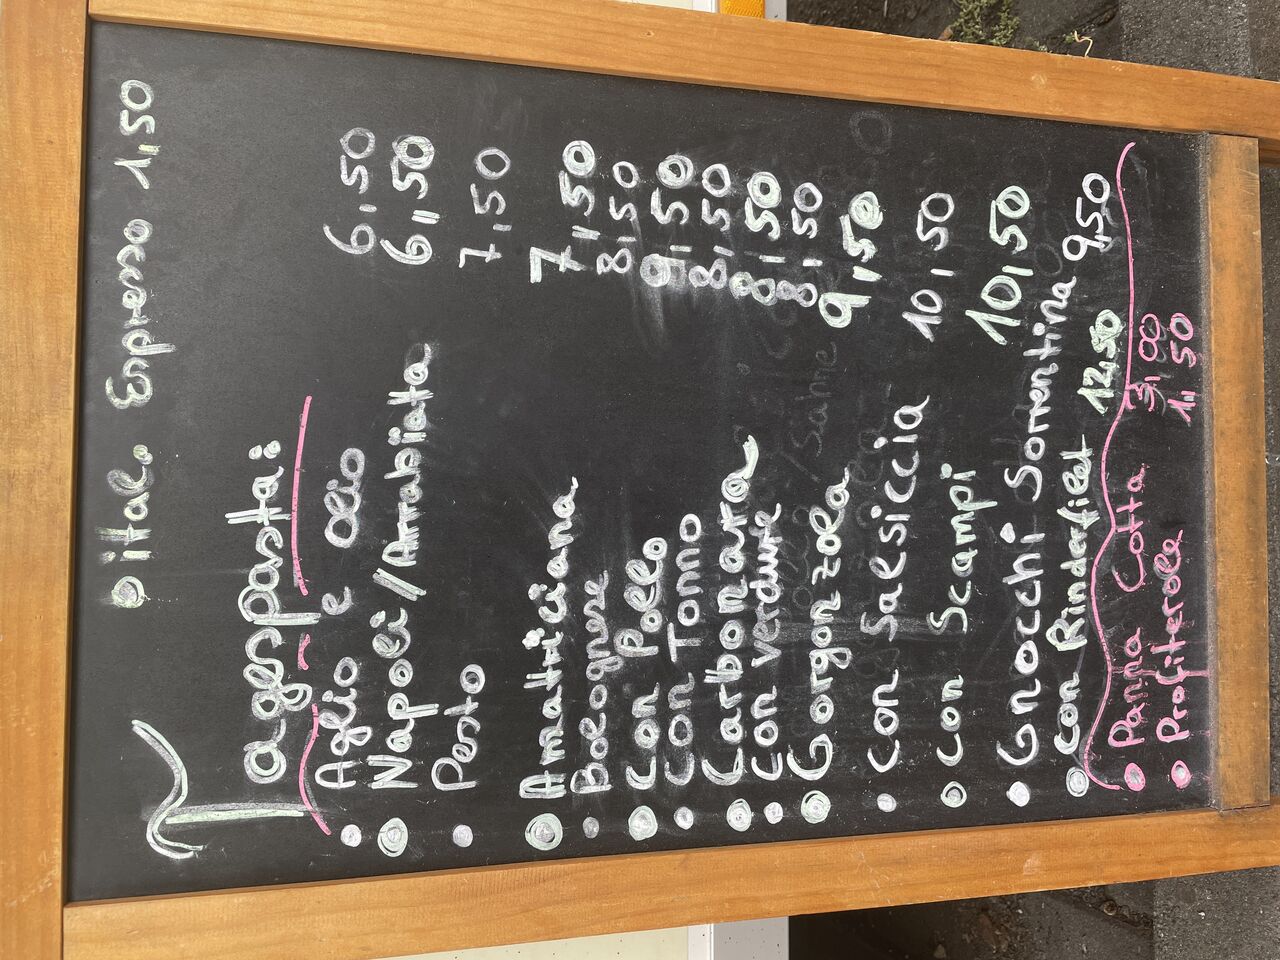 • ital. Espresso 1,50
Tagespasta:
• Aglio e olio 6,50
• Napoli/Arrabiata 6,50
• Pesto 7,50
• Amatriciana 7,50
• Bolognese 8,50
• con Pollo 9,50
• con Tonno 8,50
• Carbonara 8,50
• con verdure 8,50
• Gorgonzola 9,50
• con Salsiccia 10,50
• con Scampi 10,50
• Gnocchi Sorrentina 9,50
• con Rinderfilet 12,50
• Panna Cotta 3,00
• Profiterole 1,50